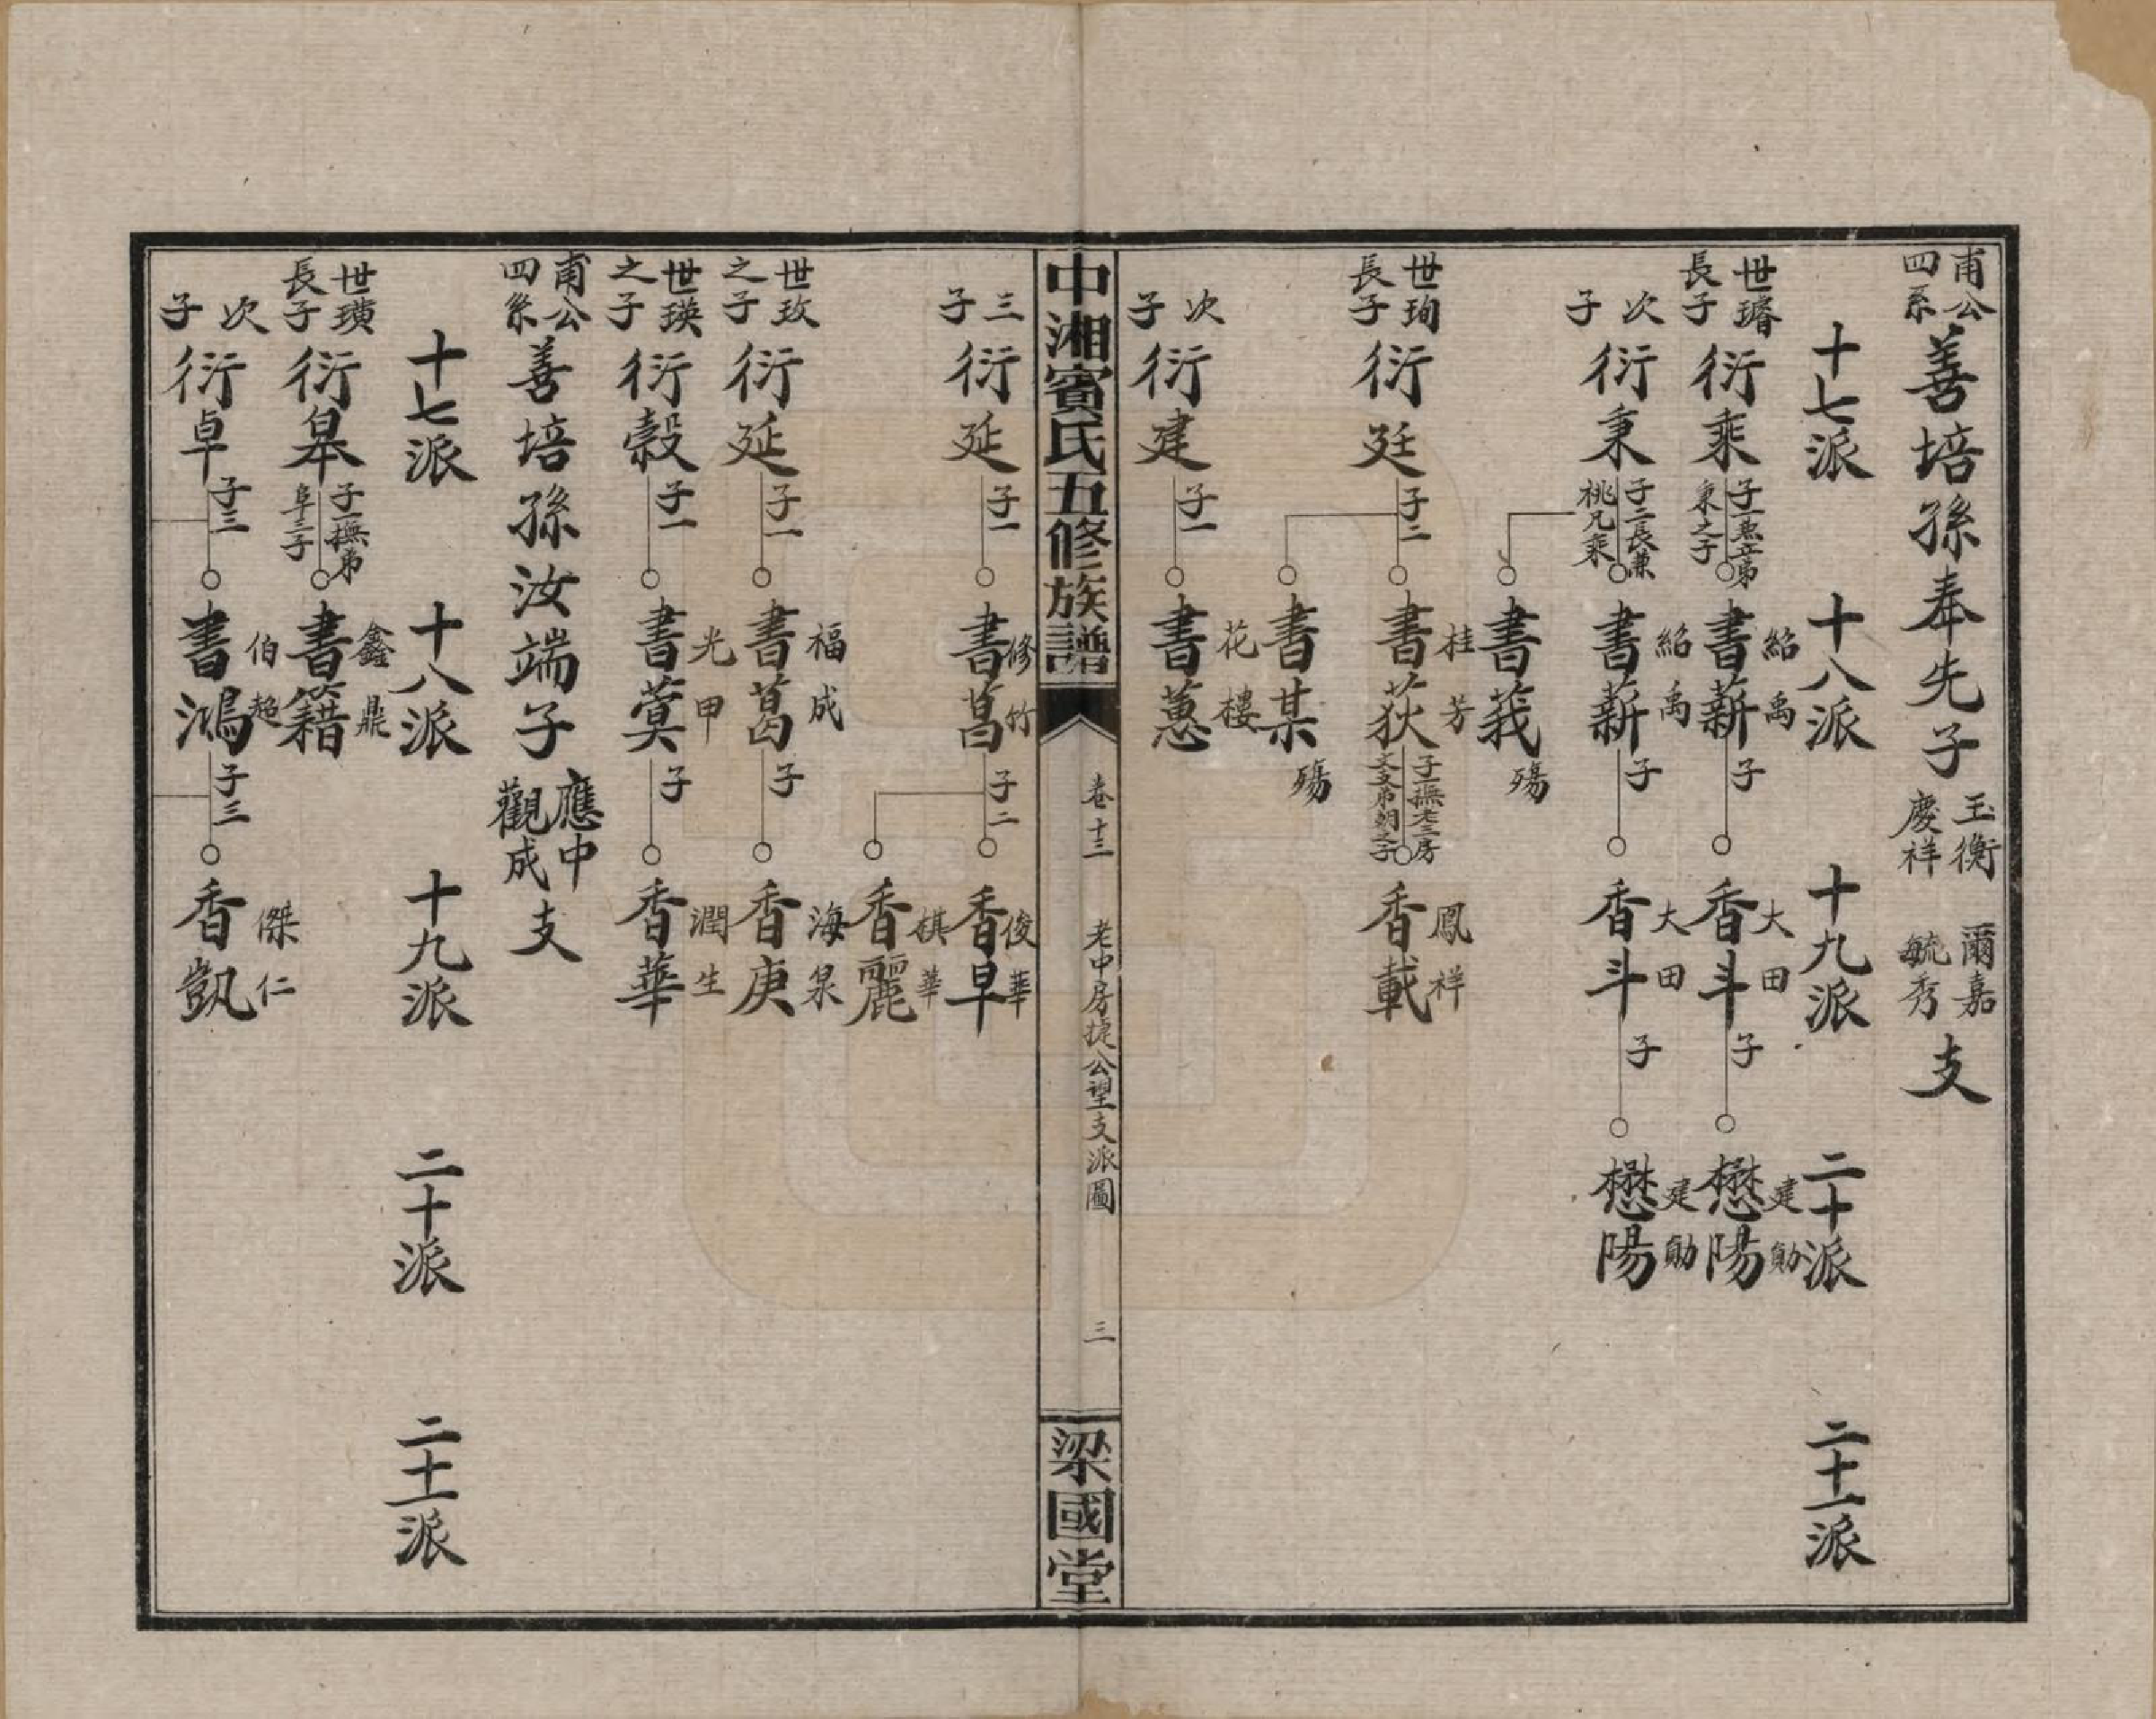 甫公四系善培孫奉先子玉衡慶祥爾嘉毓秀支
十七派 十八派 十九派 二十派 二十一派
世璿長子衍乘子一兼立弟秉之子 書薪紹禹子 香斗大田子 懋陽建勛
次子衍秉子二長兼祧兄乘 書薪紹禹子 香斗大田子 懋陽建勛
書莪殤
世珣長子衍廷子二 書荻桂芳子一撫老三房文支弟朝之子 香載鳳祥
書某殤
次子衍建子一 書蕙花樓
中湘賓氏五修族譜 卷十三 老中房捷公望支派圖 三 梁國堂
三子衍延子一 書菖修竹子二 香早俊華
香麗祺華
世玫之子衍延子一 書葛福成子 香庚海泉
世瑛之子衍穀子一 書蓂光甲子 香華潤生
甫公四系善培孫汝端子應中觀成支
十七派 十八派 十九派 二十派 二十一派
世璜長子衍皋子一撫弟阜三子 書籍鑫鼎
次子衍卓子三 書鴻伯超子三 香凱傑仁